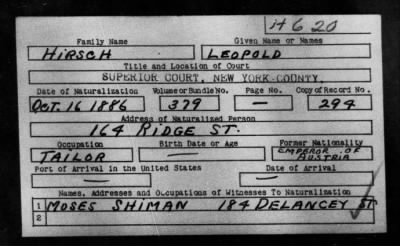 H 620
Family Name Given Name or Names
HIRSCH LEOPOLD
Title and Location of Court
SUPERIOR COURT, NEW YORK COUNTY.
Date of Naturalization Volume or Bundle No. Page No. Copy of Record No.
Oct. 16 1886 379 — 294
Address of Naturalized Person
164 RIDGE ST.
Occupation Birth Date or Age Former Nationality
TAILOR — EMPEROR OF AUSTRIA
Port of Arrival in the United States Date of Arrival
— —
Names, Addresses and Occupations of Witnesses To Naturalization
1 MOSES SHIMAN 184 DELANCEY ST
2